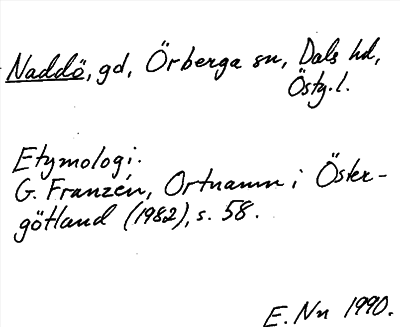 Naddö, gd, Örberga sn, Dals hd,
Östg.l.
Etymologi.
G. Franzén, Ortnamn i Öster-
götland (1982), s. 58.
E. Nn 1990.